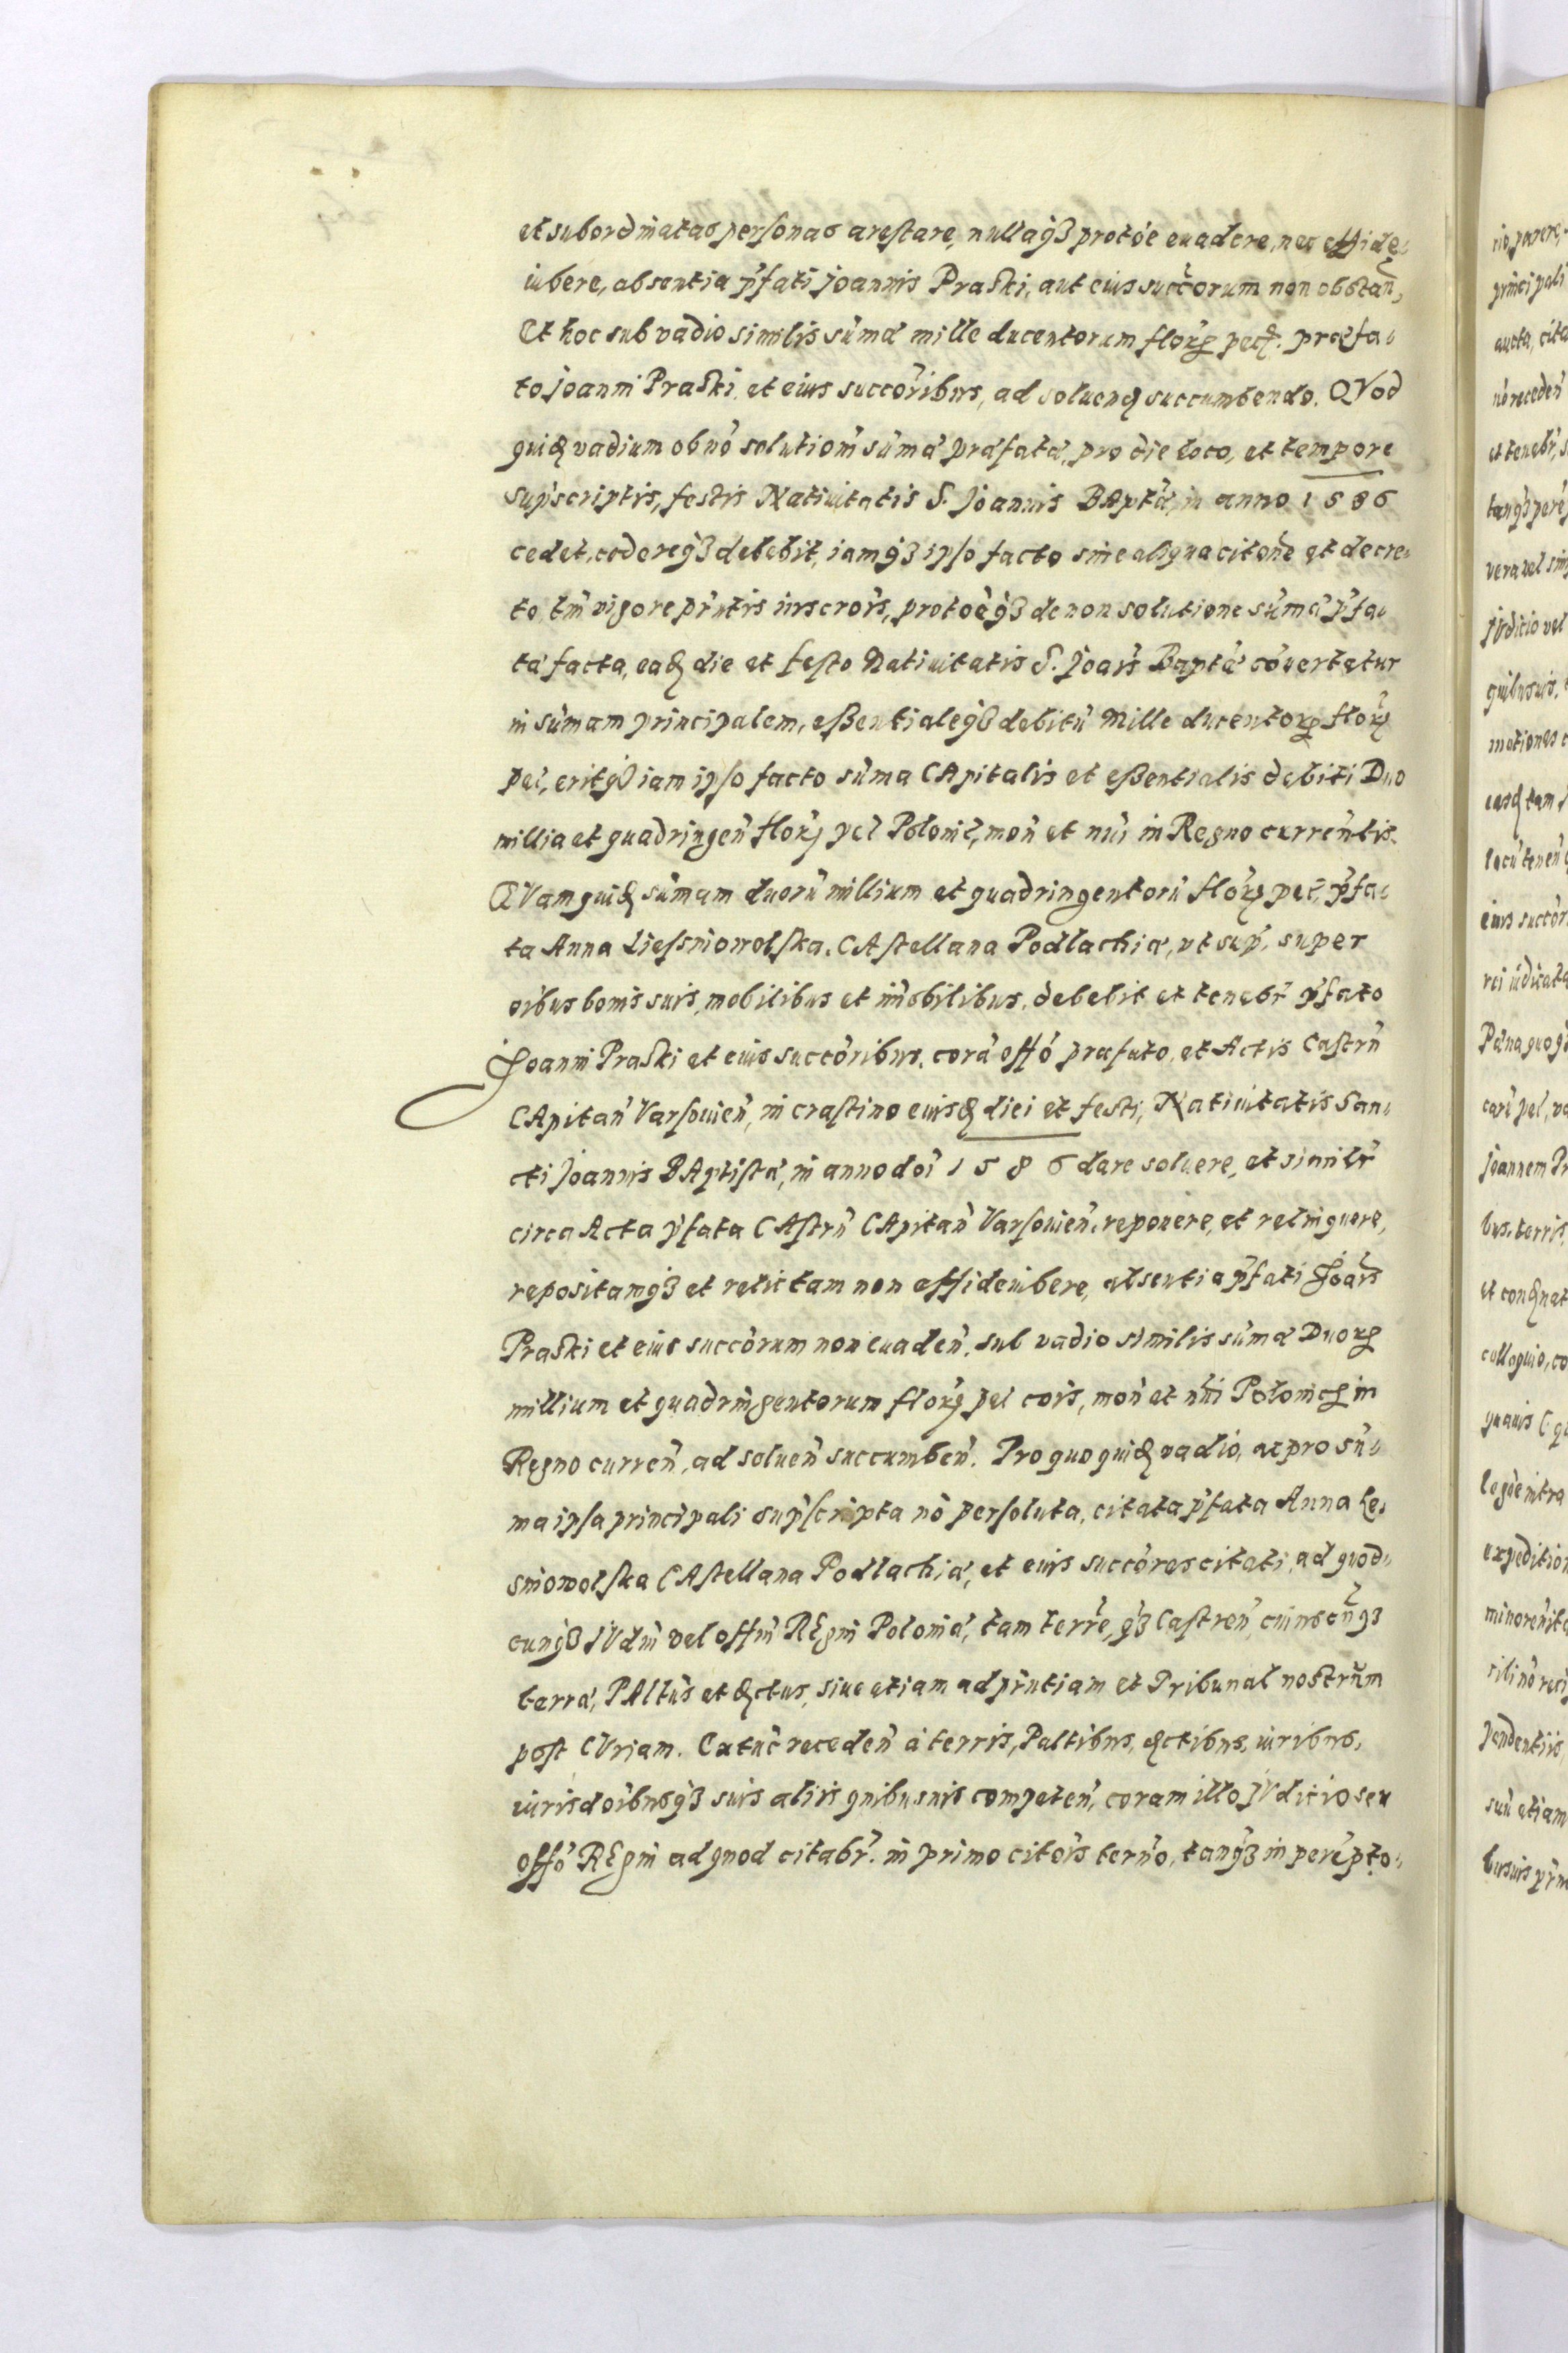 et subordinatas personas arestare, nullaq3 protõe euadere, nec effide-
iubere, absentia p̃fati Joannis Praski, aut eius succõrum non obstañ,
Et hoc sub vadio similis sũmæ mille ducentorum florų pecų. præfa-
to Joanni Praski, et eius succõribus, ad soluenđ succumbendo. QVod
quiđ vadium ob nõ solutiom̃ sũmæ præfatæ, pro die loco, et tempore
sup̃scriptis, festis Natiuitatis S. Joannis BAptæ, in anno 1586
cedet, cedereq3 debebit, iamq3 ipso facto sine aliqua citatõne et decre-
to, tm̃ vigore p̃ntis inscrõis, protõeq3 de non solutione sũmæ p̃fa-
tæ facta, eađ die et festo Natiuitatis S. Joañis Baptæ cõuertetur
in sũmam principalem, essentialeq3 debitũ Mille ducentorų florų
pel, eritq3 iam ipso facto sũma CApitalis et essentialis debiti Duo
millia et quadringeñ florų pel Polonił, moñ et nũi in Regno currentis.
QVam quiđ sũmam duorũ millium et quadringentorũ florų pec̃, p̃fa-
ta Anna Liessniowolska, CAstellana Podlachiæ, vt sup̃, super
oĩbus bonis suis, mobilibus et im̃obilibus, debebit et tenebr̃ p̃fato
Joanni Praski et eius succõribus, corã offõ præfato, et Actis Castrñ
CApitañ Varsouieñ, in crastino eiusđ diei et festi, Natiuitatis San-
cti Joannis BAptistæ, in anno dõi 1586 dare soluere, et similr̃
circa Acta p̃fata CAstrñ CApitañ Varsouieñ, reponere, et relinquere,
repositamq3 et relictam non effideiubere, absentia p̃fati Joañis
Praski et eius succõrum non euadeñ, sub vadio similis sũmæ Duorų
millium et quadringentorum florų pel cõis, moñ et nũi Polonicų in
Regno curreñ, ad solueñ succumbeñ. Pro quo quiđ vadio, ac pro sũ-
ma ipsa principali sup̃scripta nõ persoluta, citata p̃fata Anna Le-
sniowolska CAstellana Podlachiæ, et eius succõres citati, ad quod-
cunq3 JVdm̃ vel offm̃ REgni Poloniæ, tam terre, q̃3 Castreñ, cuiuscũq3
terræ, PAltũs et đctus, siue etiam ad p̃ntiam et Tribunal nostrũm
post CVriam. Ex tũc recedeñ à terris, Paltĩbus, đctibus, iuribus,
iurisdõibusq3 suis aliis quibusuis competeñ, coram illo JVditio seu
offõ REgni ad quod citabr̃, in primo citõis termĩo, tanq̃3 in perẽpto-